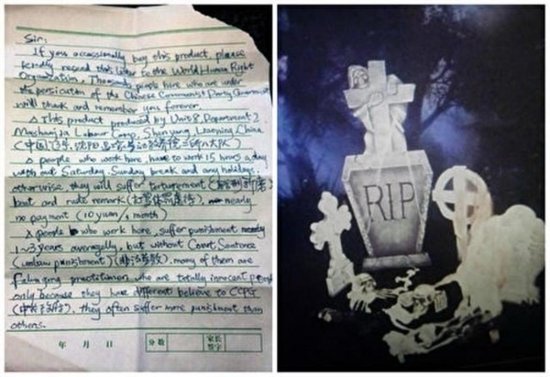 Sir:
If you occassionally buy this product, please
kindly resend this letter to the World Human Right
Organization. Thousands people here who are under
the persicution of the Chinese Communist Party Government
will thank and remember you forever.
This product produced by Unit 8, Department 2,
Masanjia Labour Camp, Shenyang, Liaoning, China
(中国,辽宁,沈阳,马三家劳动教养院二所八大队)
people who work here, have to work 15 hours a day
with out Saturday, Sunday break and any holidays,
otherwise, they will suffer torturement
beat and rude remark nearly
no payment (10 yuan/month)
people who work here, suffer punishment nearly
1~3 years averagelly, but without Court Sentence
(unlaw punishment) (非法劳教). many of them are
Falun gong practitioners, who are totally innocent people
only because they have different believe to CCPG
(中共政府), they often suffer more punishment than
others.
年 月 日
分数
家长
签字
RIP